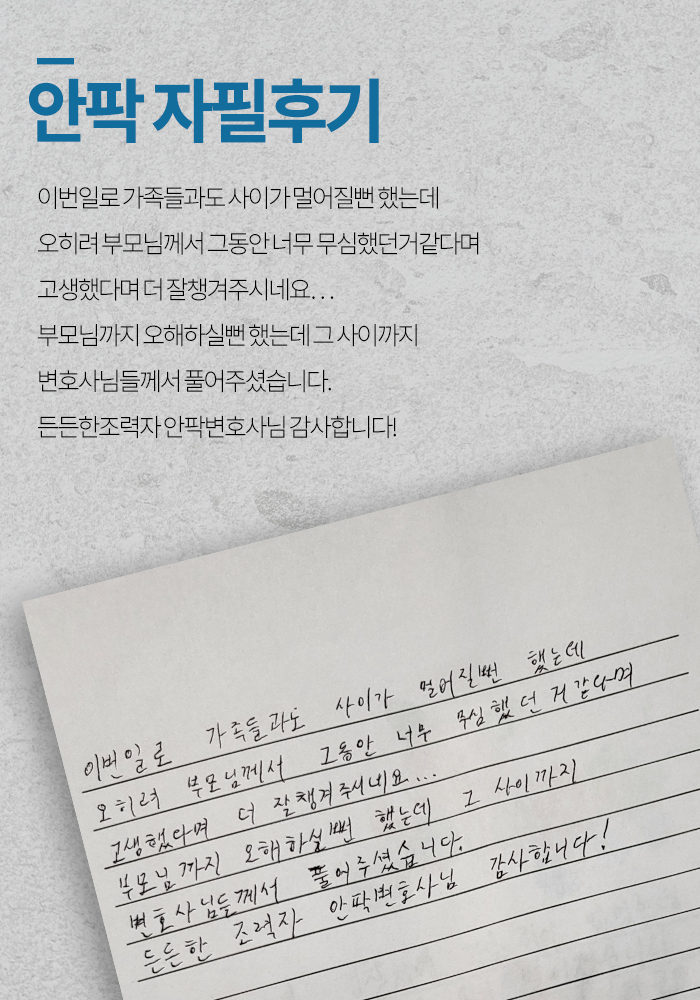 안팍 자필후기
이번일로 가족들과도 사이가 멀어질뻔 했는데
오히려 부모님께서 그동안 너무 무심했던거같다며
고생했다며 더 잘챙겨주시네요...
부모님까지 오해하실뻔 했는데 그 사이까지
변호사님들께서 풀어주셨습니다.
든든한조력자 안팍변호사님 감사합니다!
이번일로 가족들과도 사이가 멀어질뻔 했는데
오히려 부모님께서 그동안 너무 무심했던거같다며
고생했다며 더 잘챙겨주시네요...
부모님까지 오해하실뻔 했는데 그 사이까지
변호사님들께서 풀어주셨습니다.
든든한 조력자 안팍변호사님 감사합니다!